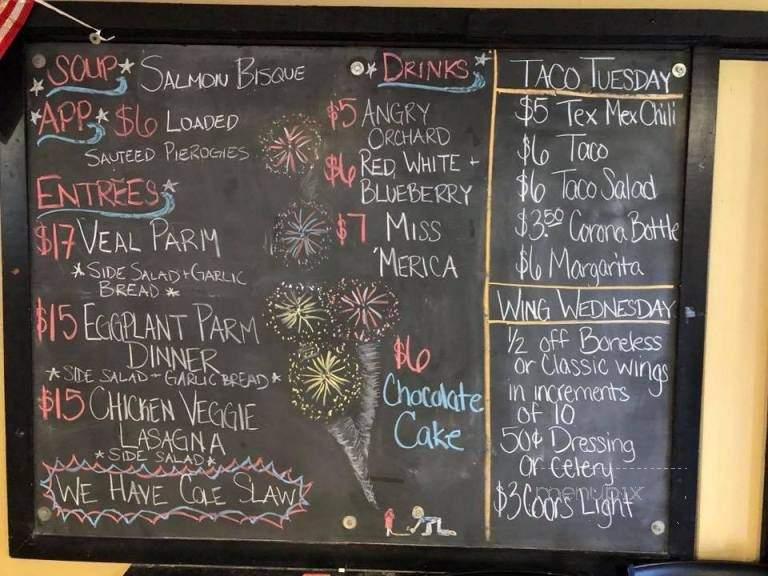 SOUP SALMON BISQUE
APP $6 LOADED
SAUTEED PIEROGIES
ENTRÉES
$17 VEAL PARM
*SIDE SALAD + GARLIC
BREAD*
$15 EGGPLANT PARM
DINNER
*SIDE SALAD + GARLIC BREAD*
$15 CHICKEN VEGGIE
LASAGNA
*SIDE SALAD*
WE HAVE COLE SLAW
DRINKS
$5 ANGRY
ORCHARD
$6 RED, WHITE +
BLUEBERRY
$7 MISS
'MERICA
$6
Chocolate
Cake
TACO TUESDAY
$5 Tex Mex Chili
$6 Taco
$6 Taco Salad
$3.50 Corona Bottle
$6 Margarita
WING WEDNESDAY
1/2 off Boneless
or Classic wings
in increments
of 10
50¢ Dressing
or celery
menupix
$3 Coors Light